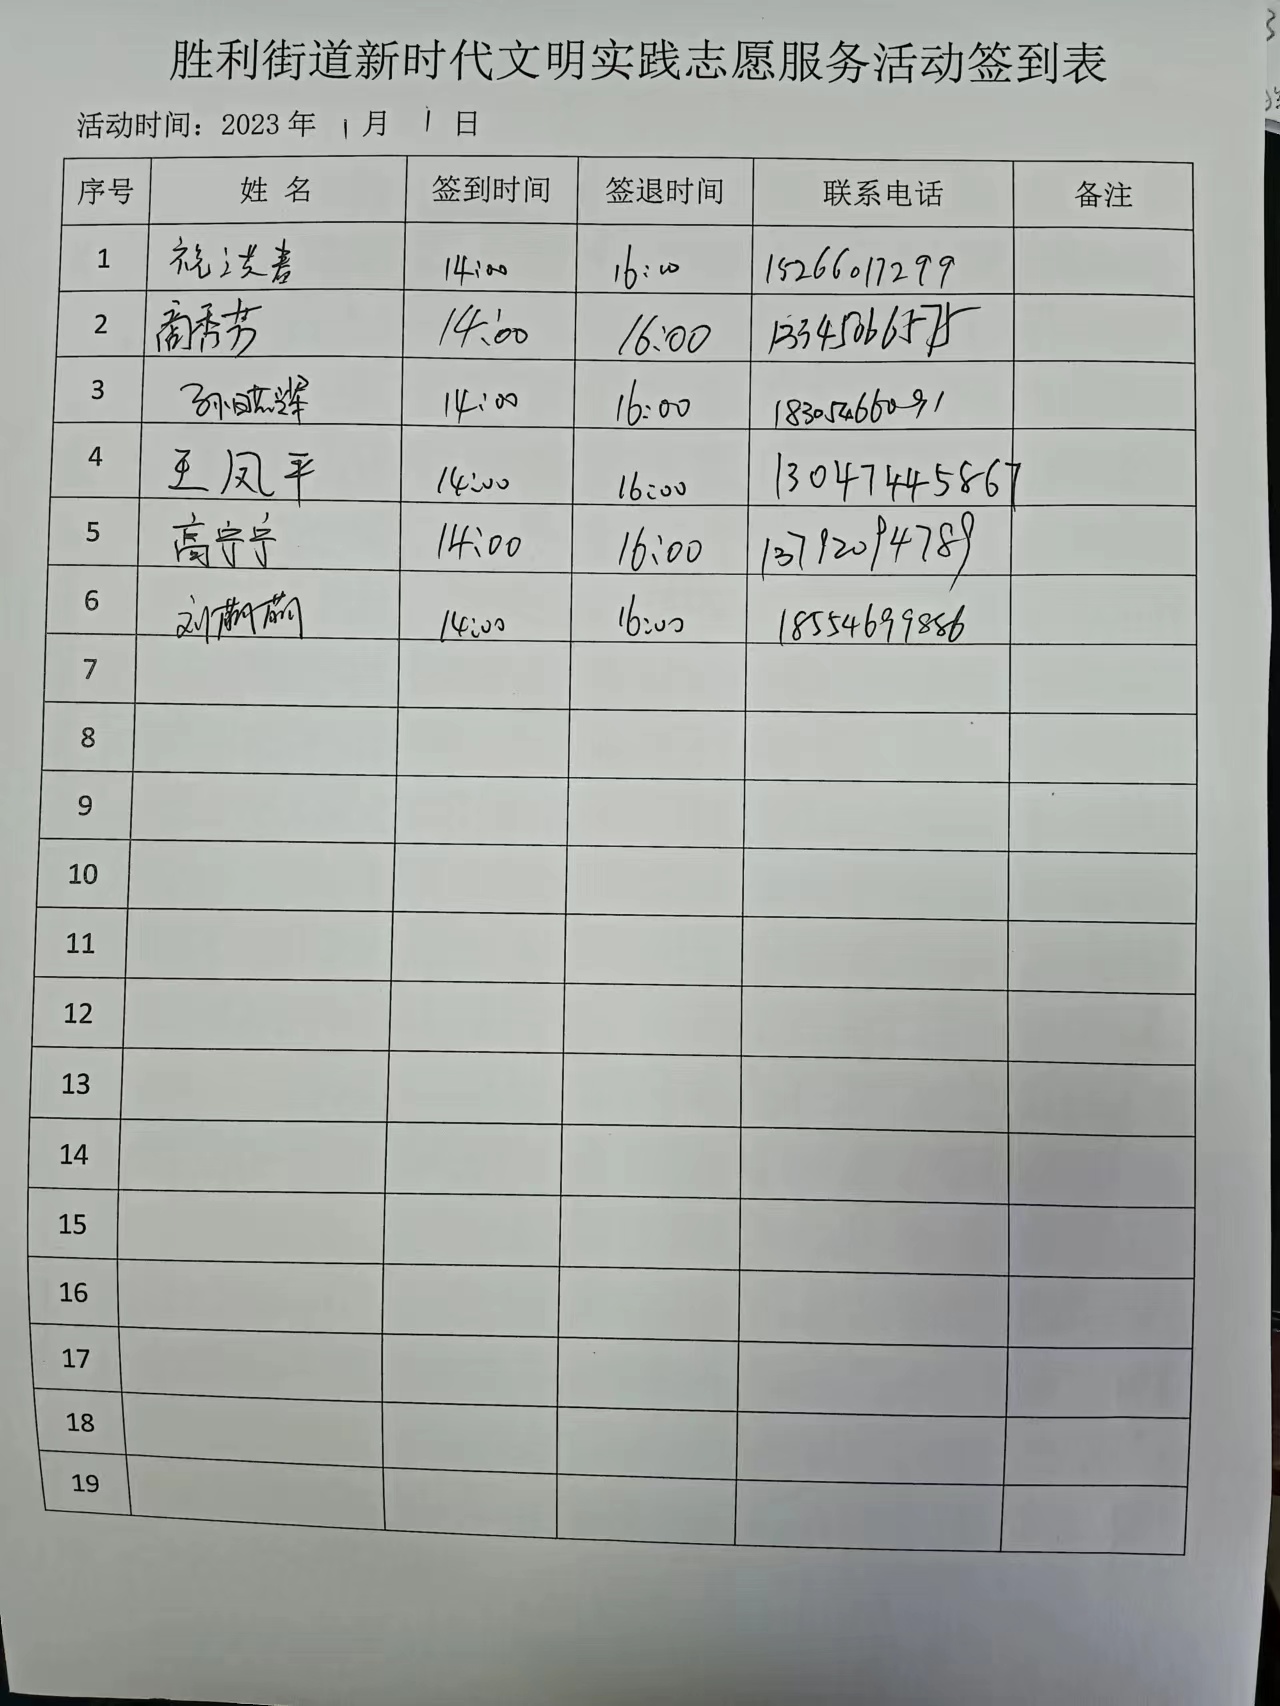 胜利街道新时代文明实践志愿服务活动签到表
活动时间：2023年 1月 1日
序号 姓 名 签到时间 签退时间 联系电话 备注
1 14:00 16:00 15266017299
2 商秀芳 14:00 16:00 13345066575
3 14:00 16:00 18305466091
4 王凤平 14:00 16:00 13047445867
5 高宁宁 14:00 16:00 13792094789
6 刘萌萌 14:00 16:00 18554699886
7
8
9
10
11
12
13
14
15
16
17
18
19